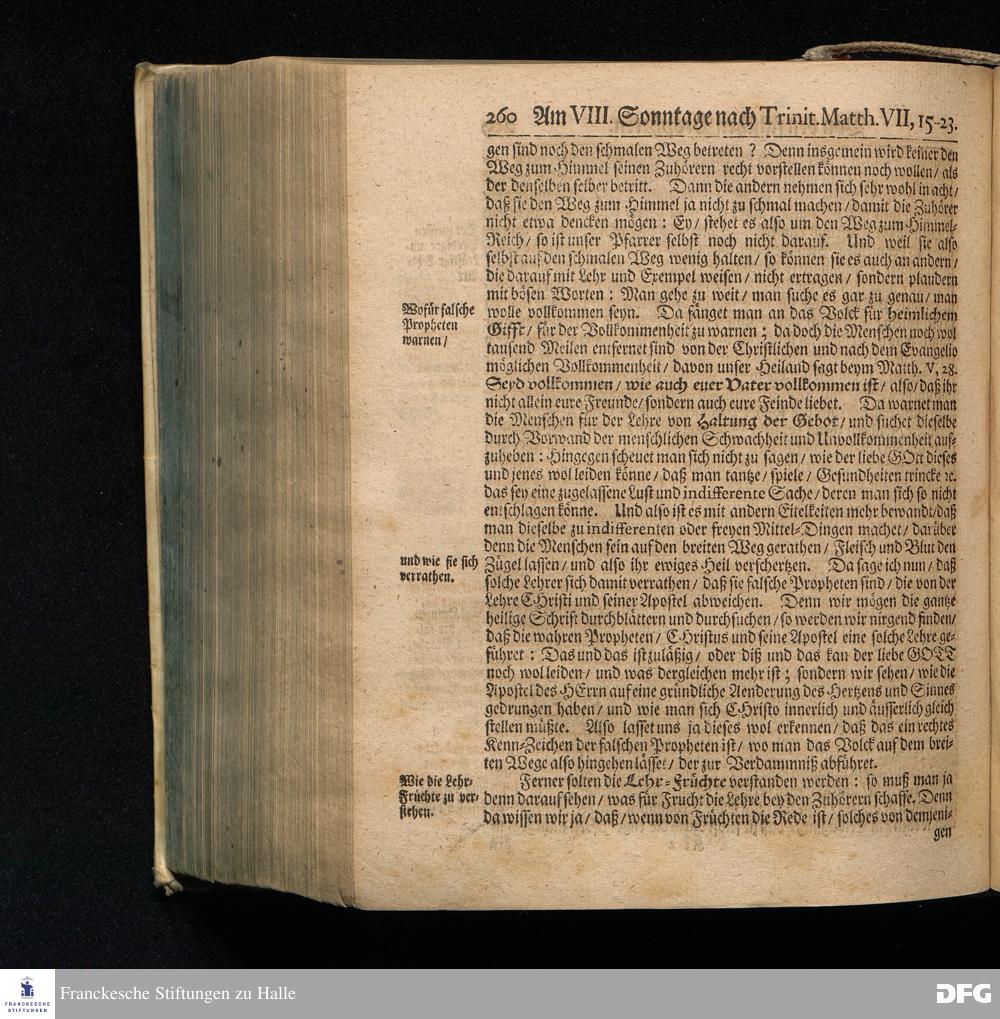 260 Am VIII. Sonntage nach Trinit. Matth. VII, 15-23.
gen sind noch den schmalen Weg betreten ? Denn insgemein wird keiner den
Weg zum Himmel seinen Zuhörern recht vorstellen können noch wollen / als
der denselben selber betritt. Dann die andern nehmen sich sehr wohl in acht /
daß sie den Weg zum Himmel ja nicht zu schmal machen / damit die Zuhörer
nicht etwa dencken mögen : Ey / stehet es also um den Weg zum Himmel-
Reich / so ist unser Pfarrer selbst noch nicht darauf. Und weil sie also
selbst auf den schmalen Weg wenig halten / so können sie es auch an andern /
die darauf mit Lehr und Exempel weisen / nicht ertragen / sondern plaudern
mit bösen Worten : Man gehe zu weit / man suche es gar zu genau / man
wolle vollkommen seyn. Da fänget man an das Volck für heimlichem
Gifft / für der Vollkommenheit zu warnen ; da doch die Menschen noch wol
tausend Meilen entfernet sind von der Christlichen und nach dem Evangelio
möglichen Vollkommenheit / davon unser Heiland sagt beym Matth. V, 28.
Seyd vollkommen / wie auch euer Vater vollkommen ist / also / daß ihr
nicht allein eure Freunde / sondern auch eure Feinde liebet. Da warnet man
die Menschen für der Lehre von Haltung der Gebot / und suchet dieselbe
durch Vorwand der menschlichen Schwachheit und Unvollkommenheit auf-
zuheben : Hingegen scheuet man sich nicht zu sagen / wie der liebe GOtt dieses
und jenes wol leiden könne / daß man tantze / spiele / Gesundheiten trincke ꝛc.
das sey eine zugelassene Lust und indifferente Sache / deren man sich so nicht
entschlagen könne. Und also ist es mit andern Eitelkeiten mehr bewandt / daß
man dieselbe zu indifferenten oder freyen Mittel-Dingen machet / darüber
denn die Menschen fein auf den breiten Weg gerathen / Fleisch und Blut den
Zügel lassen / und also ihr ewiges Heil verschertzen. Da sage ich nun / daß
solche Lehrer sich damit verrathen / daß sie falsche Propheten sind / die von der
Lehre CHristi und seiner Apostel abweichen. Denn wir mögen die gantze
heilige Schrift durchblättern und durchsuchen / so werden wir nirgend finden /
daß die wahren Propheten / CHristus und seine Apostel eine solche Lehre ge-
führet : Das und das ist zuläßig / oder diß und das kan der liebe GOTT
noch wol leiden / und was dergleichen mehr ist ; sondern wir sehen / wie die
Apostel des HErrn auf eine gründliche Aenderung des Hertzens und Sinnes
gedrungen haben / und wie man sich CHristo innerlich und äusserlich gleich
stellen müßte. Also lasset uns ja dieses wol erkennen / daß das ein rechtes
Kenn-Zeichen der falschen Propheten ist / wo man das Volck auf dem brei-
ten Wege also hingehen lässet / der zur Verdammniß abführet.
Ferner solten die Lehr-Früchte verstanden werden : so muß man ja
denn darauf sehen / was für Frucht die Lehre bey den Zuhörern schaffe. Denn
da wissen wir ja / daß / wenn von Früchten die Rede ist / solches von demjeni-
gen
Wofür falsche
Propheten
warnen /
und wie sie sich
verrathen.
Wie die Lehr-
Früchte zu ver-
stehen.
FRANCKESCHE
STIFTUNGEN
Franckesche Stiftungen zu Halle
DFG